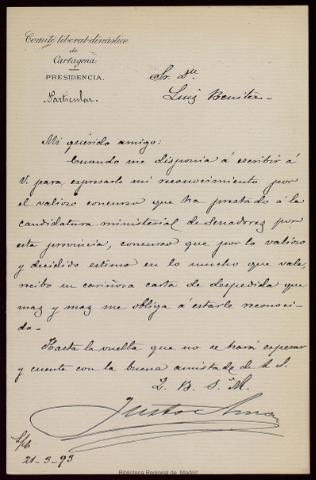 Comité liberal-dinástico
de
Cartagena
PRESIDENCIA.
Particular.
Sr. Dn
Luis Benítez.
Mi querido amigo:
Cuando me disponía á escribir á
V. para expresarle mi reconocimiento por
el valioso concurso que ha prestado á la
candidatura ministerial de Senadores por
esta provincia, concurso que por lo valioso
y decidido estimo en lo mucho que vale,
recibo su cariñosa carta de despedida que
mas y mas me obliga á estarle reconoci-
do.
Hasta la vuelta que no se hará esperar
y cuente con la buena amistad de su S. S.
Q. B. S. M.
Justo
S/c
21-3-93
Biblioteca Regional de Madrid